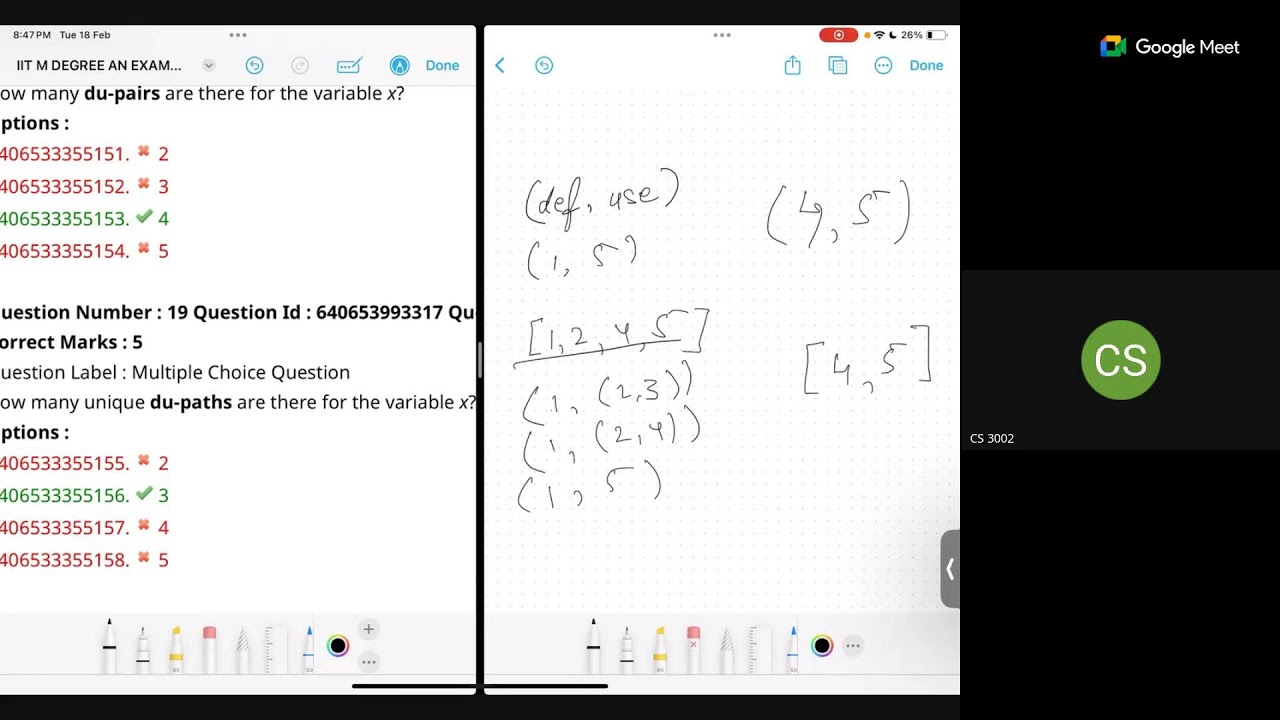 8:47 PM Tue 18 Feb
IIT M DEGREE AN EXAM...
Done
ow many du-pairs are there for the variable x?
ptions :
406533355151. 2
406533355152. 3
406533355153. 4
406533355154. 5
uestion Number : 19 Question Id : 640653993317 Qu
orrect Marks : 5
uestion Label : Multiple Choice Question
ow many unique du-paths are there for the variable x?
ptions :
406533355155. 2
406533355156. 3
406533355157. 4
406533355158. 5
26%
Done
(def, use)
(1, 5)
[1, 2, 4, 5]
(1, (2,3))
(1, (2,4))
(1, 5)
(4, 5)
[4, 5]
Google Meet
CS
CS 3002